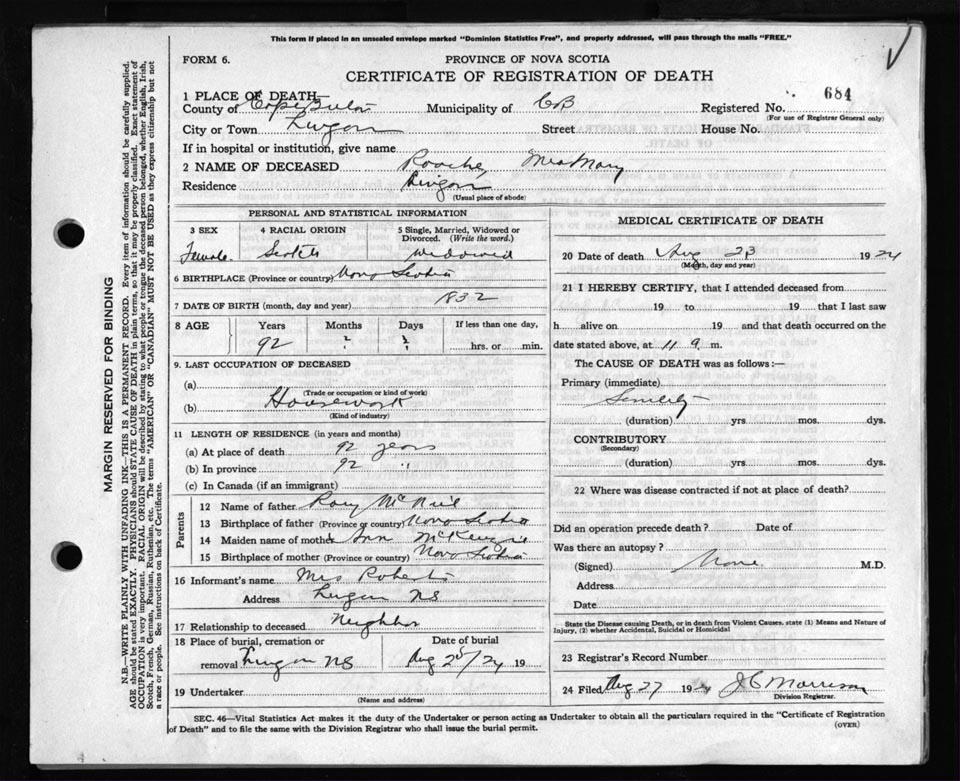 This form if placed in an unsealed envelope marked "Dominion Statistics Free", and properly addressed, will pass through the mails "FREE."
FORM 6.
PROVINCE OF NOVA SCOTIA
CERTIFICATE OF REGISTRATION OF DEATH
1 PLACE OF DEATH—
684
County of Cape Breton Municipality of CB Registered No.
(For use of Registrar General only)
City or Town Street House No.
If in hospital or institution, give name
2 NAME OF DECEASED Mrs Mary
Residence
(Usual place of abode)
PERSONAL AND STATISTICAL INFORMATION
3 SEX 4 RACIAL ORIGIN 5 Single, Married, Widowed or Divorced. (Write the word.)
Female Scotch Widowed
6 BIRTHPLACE (Province or country) Nova Scotia
7 DATE OF BIRTH (month, day and year) 1832
8 AGE Years Months Days If less than one day,
92 ? ? hrs. or min.
9. LAST OCCUPATION OF DECEASED
(a)
(Trade or occupation or kind of work)
(b) Housework
(Kind of industry)
11 LENGTH OF RESIDENCE (in years and months)
(a) At place of death 92 years
(b) In province 92 "
(c) In Canada (if an immigrant)
Parents
12 Name of father Rory McNeil
13 Birthplace of father (Province or country) Nova Scotia
14 Maiden name of mother Ann McKenzie
15 Birthplace of mother (Province or country) Nova Scotia
16 Informant's name Mrs Roberts
Address NS
17 Relationship to deceased Neighbor
18 Place of burial, cremation or Date of burial
removal NS Aug 25/24 19
19 Undertaker
(Name and address)
MEDICAL CERTIFICATE OF DEATH
20 Date of death Aug 23 1924
(Month, day and year)
21 I HEREBY CERTIFY, that I attended deceased from
19 to 19 that I last saw
h alive on 19 and that death occurred on the
date stated above, at 11 9. m.
The CAUSE OF DEATH was as follows:—
Primary (immediate)
Senility
(duration) yrs mos. dys.
CONTRIBUTORY
(Secondary)
(duration) yrs mos. dys.
22 Where was disease contracted if not at place of death?
Did an operation precede death? Date of
Was there an autopsy?
(Signed) None M.D.
Address
Date
State the Disease causing Death, or in death from Violent Causes. state (1) Means and Nature of
Injury, (2) whether Accidental, Suicidal or Homicidal
23 Registrar's Record Number
24 Filed Aug 27 1924 J C Morrison
Division Registrar.
SEC. 46—Vital Statistics Act makes it the duty of the Undertaker or person acting as Undertaker to obtain all the particulars required in the "Certificate of Registration
of Death" and to file the same with the Division Registrar who shall issue the burial permit.
(OVER)
MARGIN RESERVED FOR BINDING
N.B.—WRITE PLAINLY WITH UNFADING INK—THIS IS A PERMANENT RECORD. Every item of information should be carefully supplied.
AGE should be stated EXACTLY. PHYSICIANS should STATE CAUSE OF DEATH in plain terms, so that it may be properly classified. Exact statement of
OCCUPATION is very important. RACIAL ORIGIN will be described by stating to what people or tongue the deceased person belonged, whether English, Irish,
Scotch, French, German, Russian, Ruthenian, etc. The terms "AMERICAN" or "CANADIAN" MUST NOT BE USED as they express citizenship but not
a race or people. See instructions on back of Certificate.